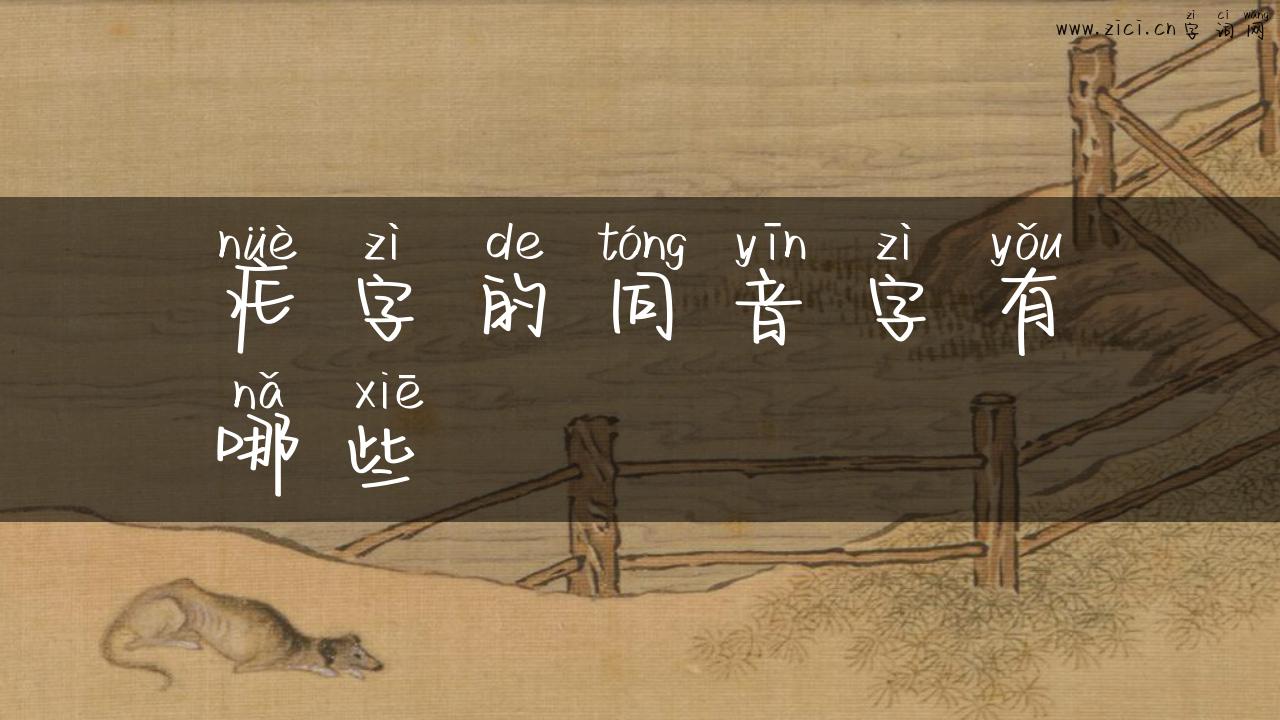 zì cì wǎng
www.zici.cn 字词网
nüè zì de tóng yīn zì yǒu
疟字的同音字有
nǎ xiē
哪些